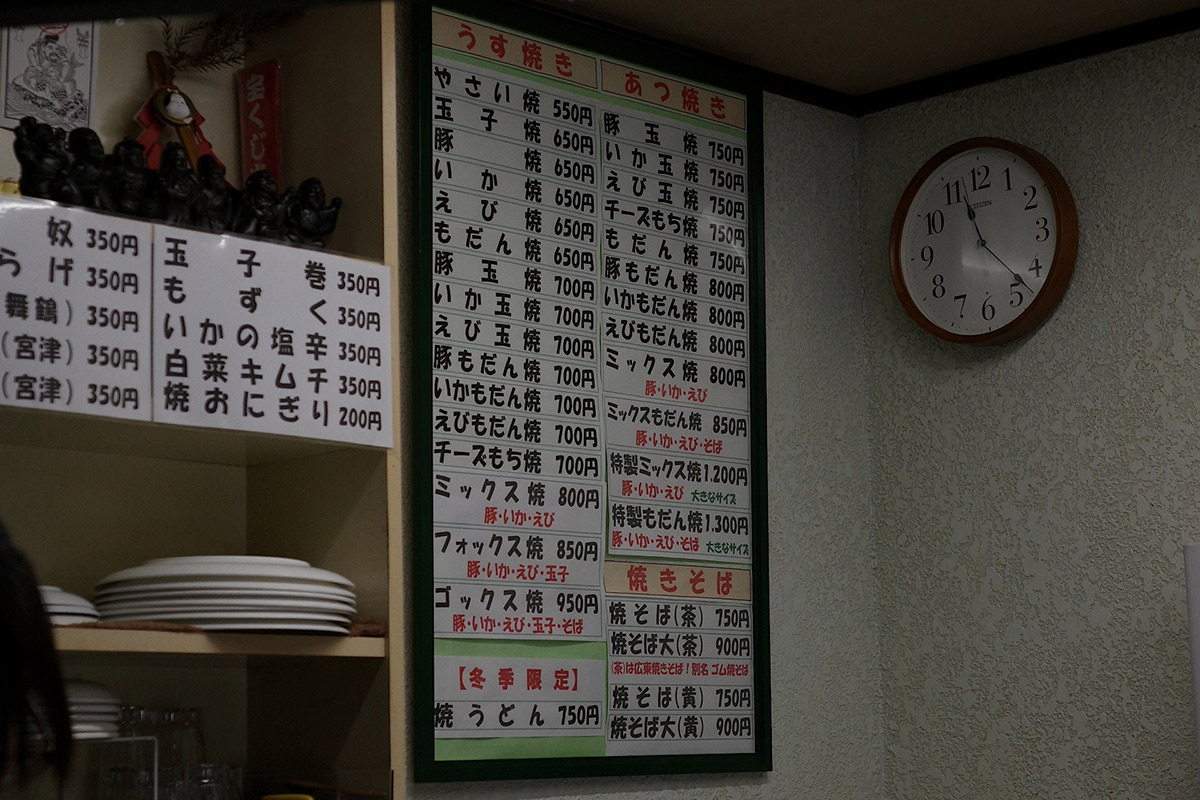 宝くじ
奴 350円
らげ 350円
舞鶴) 350円
(宮津) 350円
(宮津) 350円
玉子巻 350円
もずく 350円
いかの塩辛 350円
白菜キムチ 350円
焼おにぎり 200円
うす焼き
やさい焼 550円
玉子焼 650円
豚焼 650円
いか焼 650円
えび焼 650円
もだん焼 650円
豚玉焼 700円
いか玉焼 700円
えび玉焼 700円
豚もだん焼 700円
いかもだん焼 700円
えびもだん焼 700円
チーズもち焼 700円
ミックス焼 800円
豚・いか・えび
フォックス焼 850円
豚・いか・えび・玉子
ゴックス焼 950円
豚・いか・えび・玉子・そば
【冬季限定】
焼うどん 750円
あつ焼き
豚玉焼 750円
いか玉焼 750円
えび玉焼 750円
チーズもち焼 750円
もだん焼 750円
豚もだん焼 800円
いかもだん焼 800円
えびもだん焼 800円
ミックス焼 800円
豚・いか・えび
ミックスもだん焼 850円
豚・いか・えび・そば
特製ミックス焼 1,200円
豚・いか・えび 大きなサイズ
特製もだん焼 1,300円
豚・いか・えび・そば 大きなサイズ
焼きそば
焼そば(茶) 750円
焼そば大(茶) 900円
(茶)は広東焼きそば!別名 ゴム焼そば
焼そば(黄) 750円
焼そば大(黄) 900円
12
1
2
3
4
5
6
7
8
9
10
11
CITIZEN